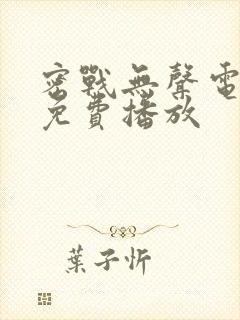 密戰無聲電
免費播放
葉子忻